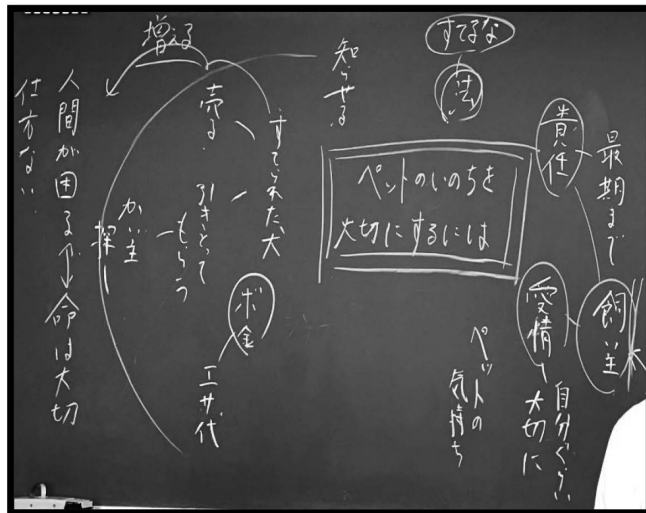 最期まで
責任
飼い主
愛情
自分ぐらい
大切に
ペットの
気持ち
すてるな
法
ペットのいのちを
大切にするには
知らせる
すてられた犬
売る
引きとって
もらう
かい主
探し
ボ金
エサ代
増える
人間が困る
命は大切
仕方ない